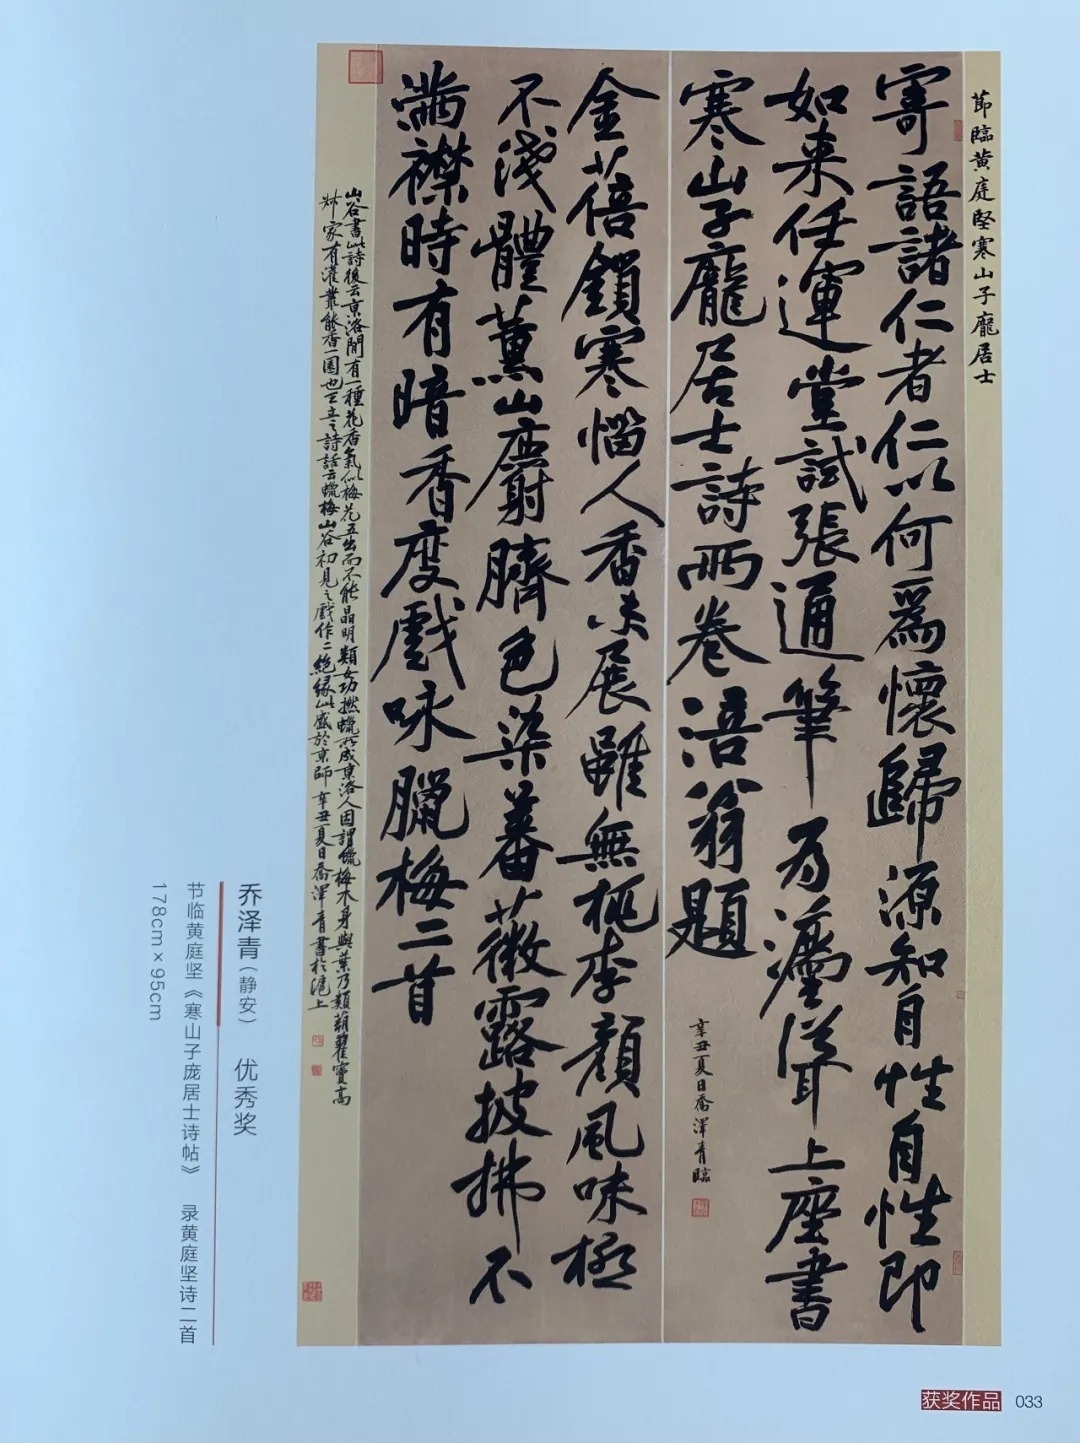 節臨黃庭堅寒山子龐居士
寄語諸仁者仁以何爲懷歸源知自性自性即
如来任運堂試張通筆为法聳上座書
寒山子龐居士詩两卷涪翁題
辛丑夏日喬澤青臨
金蓓鎖寒惱人香未展雖無桃李顏風味極
不淺體薰山麝臍色染薔薇露披拂不
滿襟時有暗香度戲咏臘梅二首
山谷書此詩後云京洛間有一種花香氣似梅花五出而不能晶明類女功撚蠟所成京洛人因謂蠟梅木身與葉乃類蒴藋竇高
州家有灌叢能香一園也王立之詩話云蠟梅山谷初見之戲作二絕缘此盛於京師辛丑夏日喬澤青書於滬上
乔泽青（静安） 优秀奖
节临黄庭坚《寒山子庞居士诗帖》 录黄庭坚诗二首
178cm×95cm
获奖作品 033